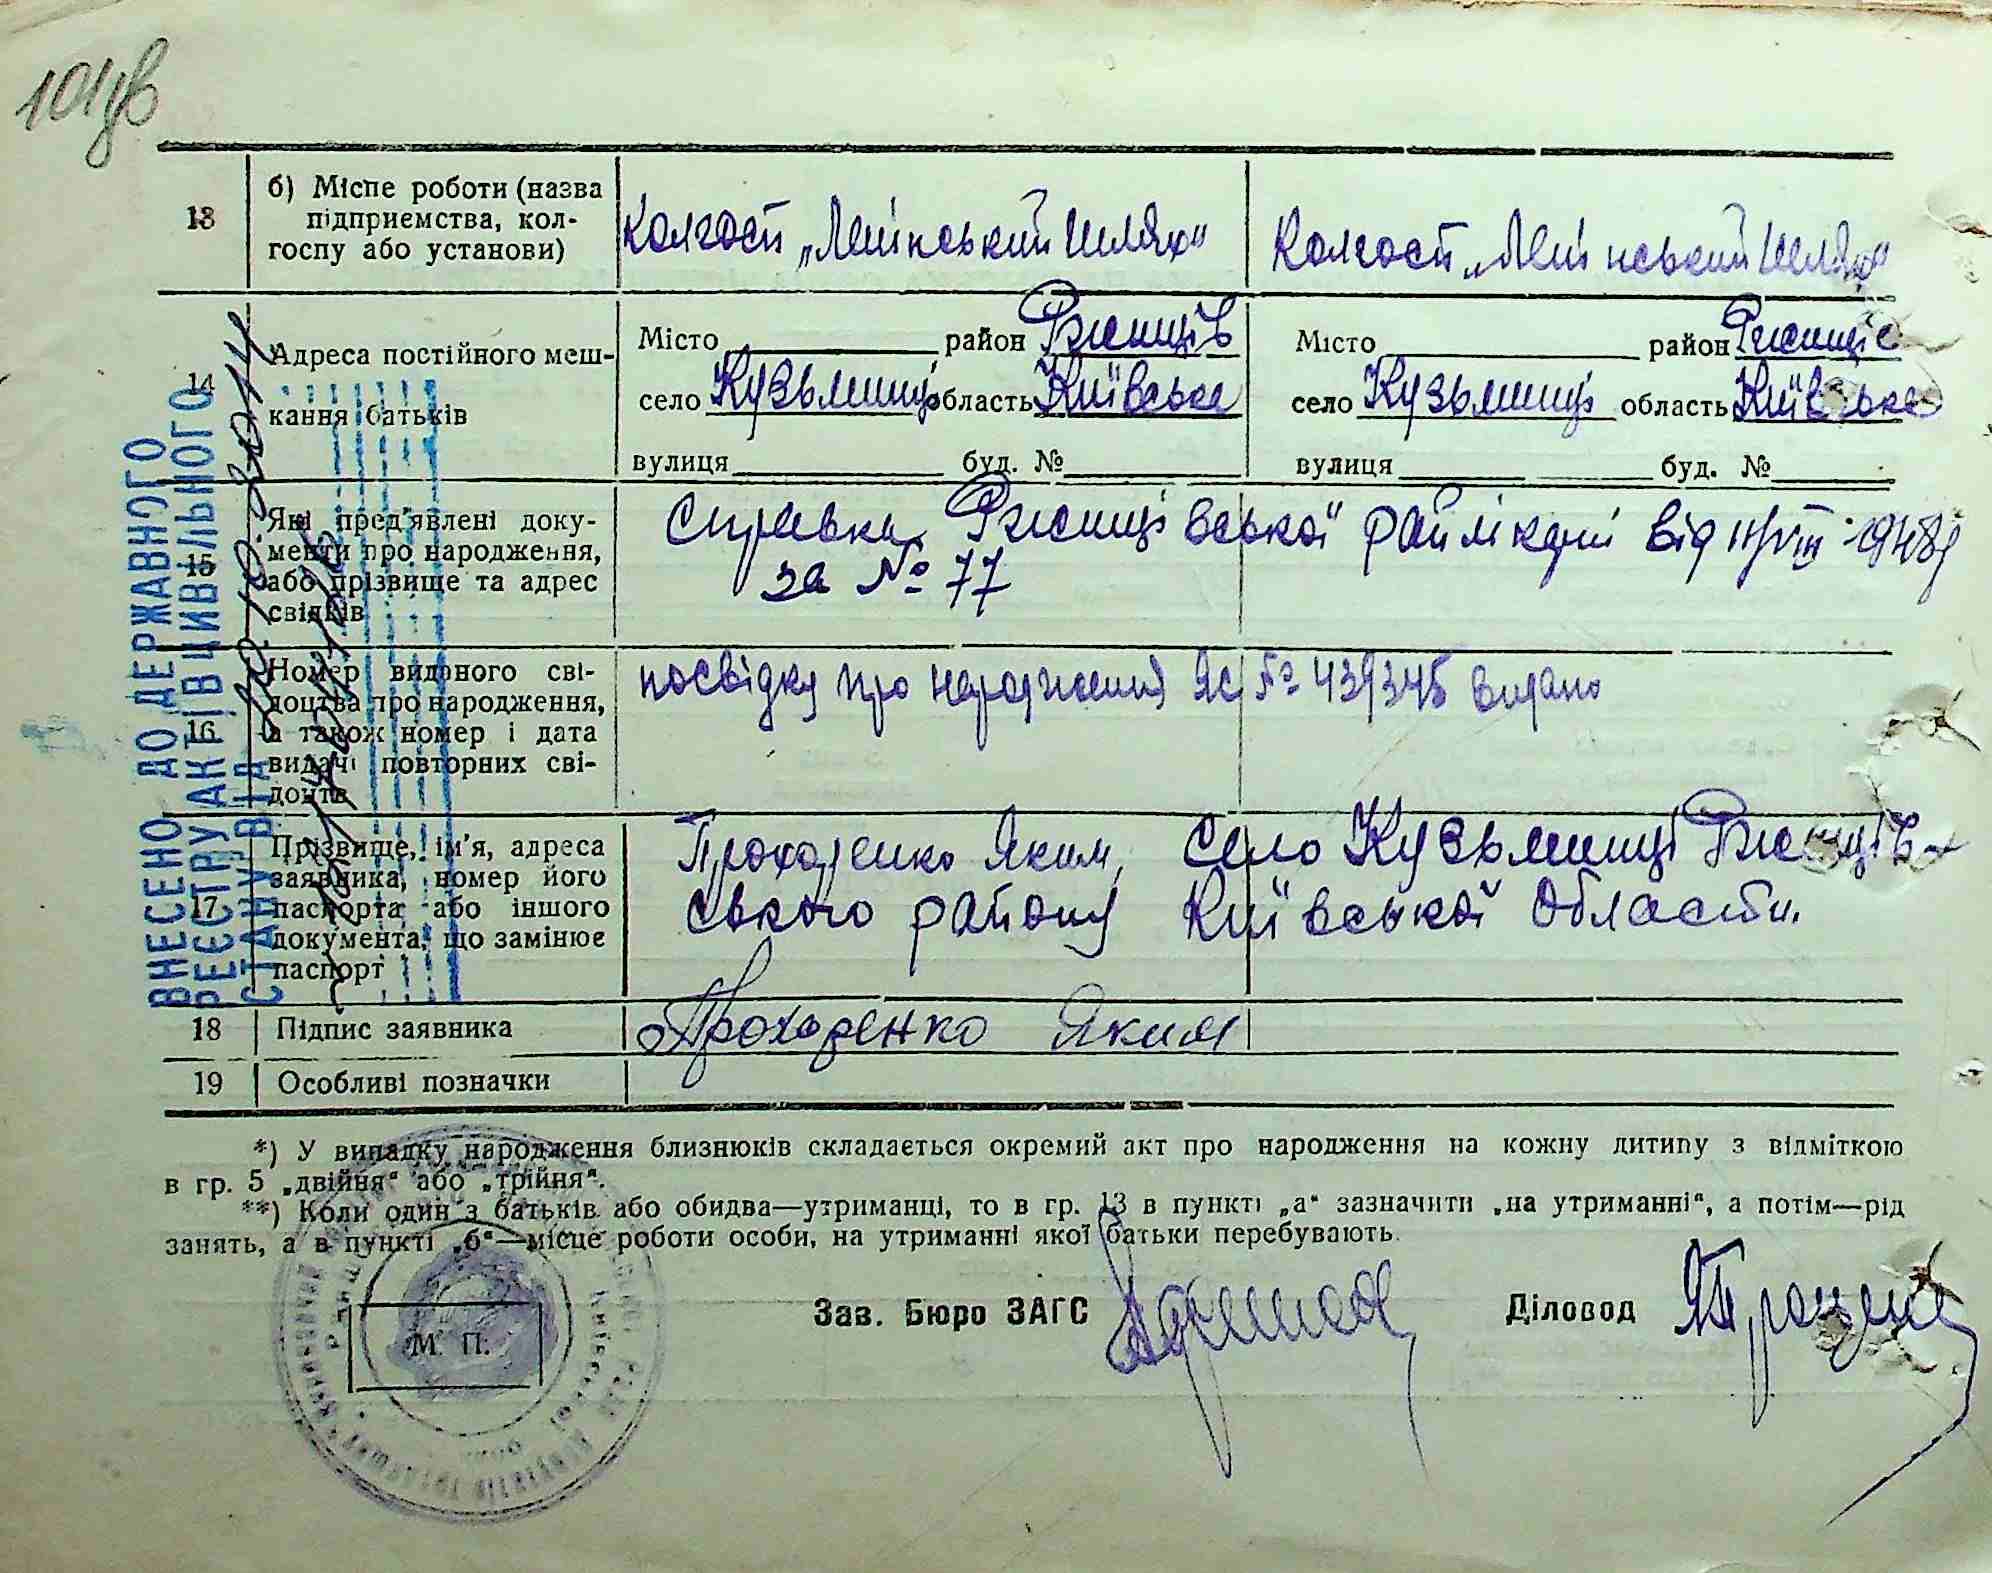 101зв
13
б) Місце роботи (назва
підприємства, кол-
госпу або установи)
Колгосп „Ленінський Шлях"
Колгосп „Ленінський Шлях"
14
Адреса постійного меш-
кання батьків
Місто район Ржищів
село Кузьминці область Київська
вулиця буд. №
Місто район Ржищів
село Кузьминці область Київська
вулиця буд. №
15
Які пред'явлені доку-
менти про народження,
або прізвище та адрес
свідків
Справка Ржищівської райлікарні від 1948р
за № 77
16
Номер виданого сві-
доцтва про народження,
а також номер і дата
видачі повторних сві-
доцтв
посвідку про народження ЯС № 439345 видано
17
Прізвище, ім'я, адреса
заявника, номер його
паспорта або іншого
документа, що замінює
паспорт
Прохоренко Яким, село Кузьминці Ржищів-
ського району Київської Області.
18
Підпис заявника
Прохоренко Яким
19
Особливі позначки
ВНЕСЕНО ДО ДЕРЖАВНОГО
РЕЄСТРУ АКТІВ ЦИВІЛЬНОГО
СТАНУ ВІД
*) У випадку народження близнюків складається окремий акт про народження на кожну дитину з відміткою
в гр. 5 „двійня" або „трійня".
**) Коли один з батьків або обидва—утриманці, то в гр. 13 в пункті „а" зазначити „на утриманні", а потім—рід
занять, а в пункті „б"—місце роботи особи, на утриманні якої батьки перебувають.
М. П.
Зав. Бюро ЗАГС
Діловод